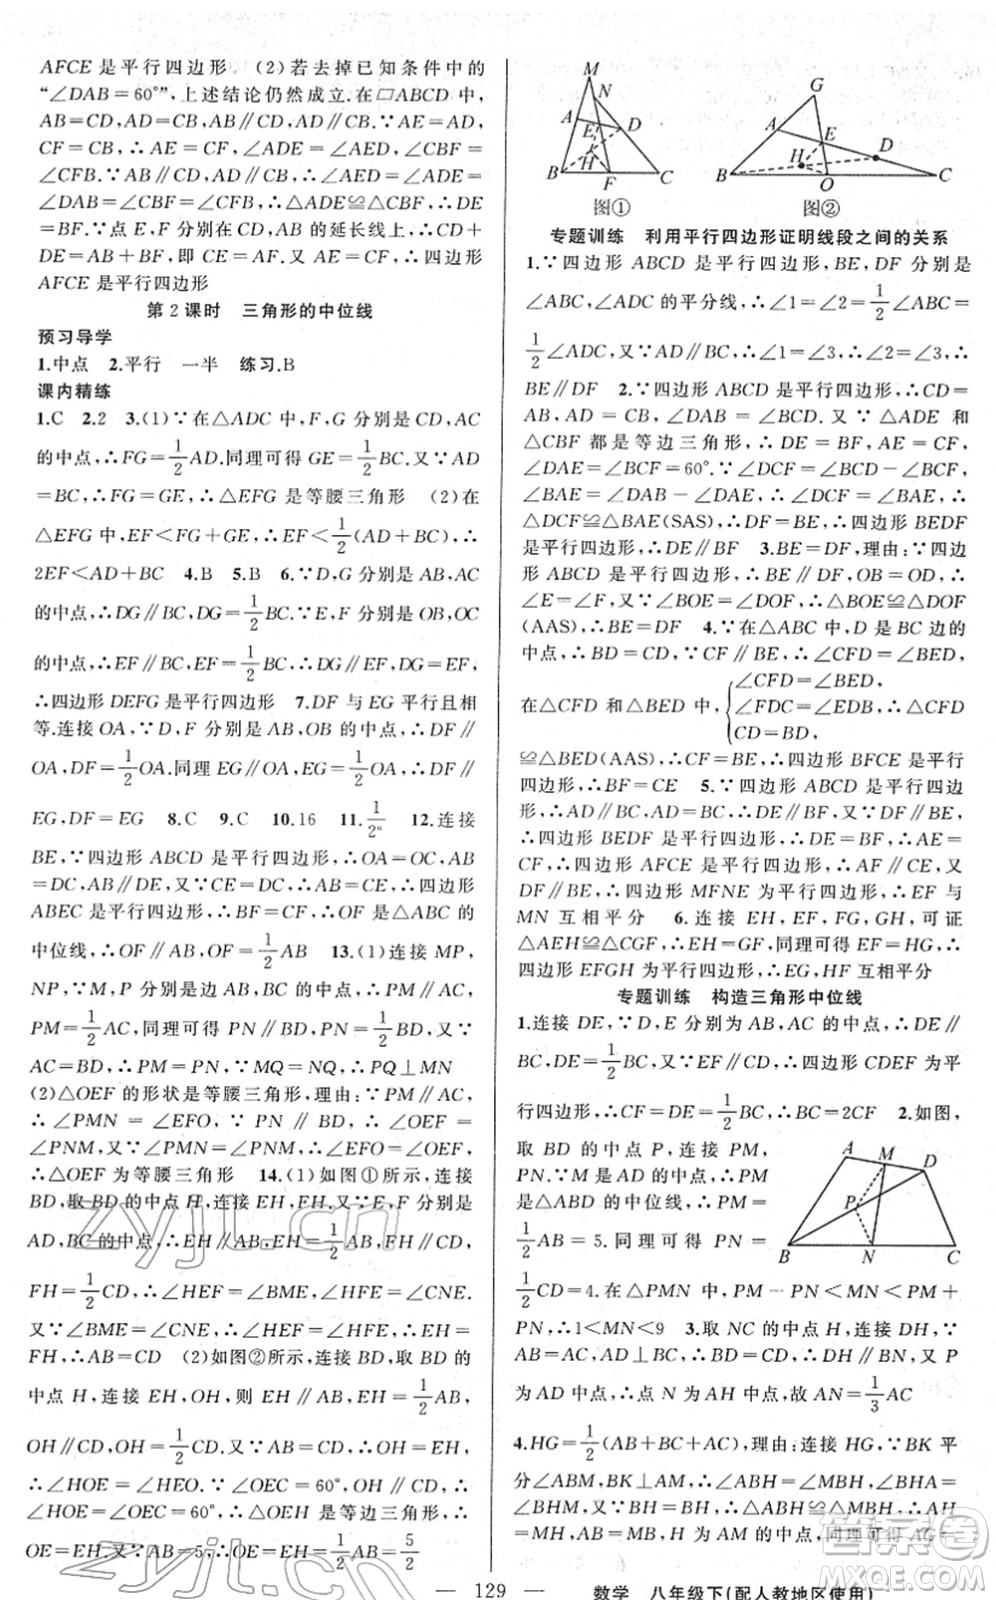 AFCE 是平行四边形　(2)若去掉已知条件中的
“∠DAB＝60°”,上述结论仍然成立.在▱ABCD 中,
AB＝CD,AD＝CB,AD∥CB,AB∥CD.∵AE＝AD,
CF＝CB,∴AE＝CF,∠ADE＝∠AED,∠CBF＝
∠CFB.∵AB∥CD,AD∥CB,∴∠AED＝∠ADE＝
∠DAB＝∠CBF＝∠CFB,∴△ADE≌△CBF,∴DE
＝BF.∵点 E,F 分别在 CD,AB 的延长线上,∴DC
＋DE＝AB＋BF,即 CE＝AF.又∵AF∥CE,∴四边形
AFCE 是平行四边形
第 2 课时　三角形的中位线
预习导学
1.中点　2.平行　一半　练习.B
课内精练
1.C　2.2　3.(1)∵在△ADC 中,F,G 分别是 CD,AC
的中点,∴FG＝1/2AD.同理可得 GE＝1/2BC.又∵AD
＝BC,∴FG＝GE,∴△EFG 是等腰三角形　(2)在
△EFG 中,EF＜FG＋GE,∴EF＜1/2(AD＋BC),∴
2EF＜AD＋BC　4.B　5.B　6.∵D,G 分别是 AB,AC
的中点,∴DG∥BC,DG＝1/2BC.∵E,F 分别是 OB,OC
的中点,∴EF∥BC,EF＝1/2BC,∴DG∥EF,DG＝EF,
∴四边形 DEFG 是平行四边形　7.DF 与 EG 平行且相
等.连接 OA,∵D,F 分别是 AB,OB 的中点,∴DF∥
OA,DF＝1/2OA.同理 EG∥OA,EG＝1/2OA,∴DF∥
EG,DF＝EG　8.C　9.C　10.16　11.1/2ⁿ　12.连接
BE,∵四边形 ABCD 是平行四边形,∴OA＝OC,AB
＝DC,AB∥DE,又∵CE＝DC,∴AB＝CE,∴四边形
ABEC 是平行四边形,∴BF＝CF,∴OF 是△ABC 的
中位线,∴OF∥AB,OF＝1/2AB　13.(1)连接 MP,
NP,∵M,P 分别是 AB,BC 的中点,∴PM∥AC,
PM＝1/2AC,同理可得 PN∥BD,PN＝1/2BD.又∵
AC＝BD,∴PM＝PN,∵MQ＝NQ,∴PQ⊥MN
(2)△OEF 的形状是等腰三角形,理由:∵PM∥AC,
∴∠PMN＝∠EFO,∵PN∥BD,∴∠OEF＝
∠PNM,又∵∠PMN＝∠PNM,∴∠EFO＝∠OEF,
∴△OEF 为等腰三角形　14.(1)如图①所示,连接
BD,取 BD 的中点 H,连接 EH,FH.又∵E,F 分别是
AD,BC 的中点,∴EH∥AB,FH∥CD,EH＝1/2AB,
FH＝1/2CD,∴∠HEF＝∠BME,∠HFE＝∠CNE.
又∵∠BME＝∠CNE,∴∠HEF＝∠HFE,∴EH＝
FH,∴AB＝CD　(2)如图②所示,连接 BD,取 BD 的
中点 H,连接 EH,OH,则 EH∥AB,EH＝1/2AB,
OH∥CD,OH＝1/2CD.又∵AB＝CD,∴HO＝EH,
∴∠HOE＝∠HEO.∵∠OEC＝60°,OH∥CD,∴
∠HOE＝∠OEC＝60°,∴△OEH 是等边三角形,∴
OE＝EH.又∵AB＝5,∴OE＝EH＝1/2AB＝5/2
M
N
A
E
D
H
B
F
C
图①
G
A
E
D
H
B
O
C
图②
专题训练　利用平行四边形证明线段之间的关系
1.∵四边形 ABCD 是平行四边形,BE,DF 分别是
∠ABC,∠ADC 的平分线,∴∠1＝∠2＝1/2∠ABC＝
1/2∠ADC,又∵AD∥BC,∴∠1＝∠3,∴∠2＝∠3,∴
BE∥DF　2.∵四边形 ABCD 是平行四边形,∴CD＝
AB,AD＝CB,∠DAB＝∠BCD.又∵△ADE 和
△CBF 都是等边三角形,∴DE＝BF,AE＝CF,
∠DAE＝∠BCF＝60°.∵∠DCF＝∠BCD－∠BCF,
∠BAE＝∠DAB－∠DAE,∴∠DCF＝∠BAE,∴
△DCF≌△BAE(SAS),∴DF＝BE,∴四边形 BEDF
是平行四边形,∴DE∥BF　3.BE＝DF,理由:∵四边
形 ABCD 是平行四边形,∴BE∥DF,OB＝OD,∴
∠E＝∠F,又∵∠BOE＝∠DOF,∴△BOE≌△DOF
(AAS),∴BE＝DF　4.∵在△ABC 中,D 是 BC 边的
中点,∴BD＝CD,∵CF∥BE,∴∠CFD＝∠BED,
在△CFD 和△BED 中,{∠CFD＝∠BED,
∠FDC＝∠EDB,∴△CFD
CD＝BD,
≌△BED(AAS),∴CF＝BE,∴四边形 BFCE 是平行
四边形,∴BF＝CE　5.∵四边形 ABCD 是平行四边
形,∴AD∥BC,AD＝BC,∴DE∥BF,又∵DF∥BE,
∴四边形 BEDF 是平行四边形,∴DE＝BF,∴AE＝
CF,∴四边形 AFCE 是平行四边形,∴AF∥CE,又
DF∥BE,∴四边形 MFNE 为平行四边形,∴EF 与
MN 互相平分　6.连接 EH,EF,FG,GH,可证
△AEH≌△CGF,∴EH＝GF,同理可得 GH＝EF,∴
四边形 EFGH 为平行四边形,∴EG,HF 互相平分
专题训练　构造三角形中位线
1.连接 DE,∵D,E 分别为 AB,AC 的中点,∴DE∥
BC,DE＝1/2BC,又∵EF∥CD,∴四边形 CDEF 为平
行四边形,∴CF＝DE＝1/2BC,∴BC＝2CF　2.如图,
取 BD 的中点 P,连接 PM,
PN.∵M 是 AD 的中点,∴PM
是△ABD 的中位线,∴PM＝
1/2AB＝5.同理可得 PN＝
A
M
D
P
B
N
C
1/2CD＝4.在△PMN 中,PM－PN＜MN＜PM＋
PN,∴1＜MN＜9　3.取 NC 的中点 H,连接 DH,∵
AB＝AC,AD⊥BC,∴D 为 BC 中点,∴DH∥BN,又 P
为 AD 中点,∴N 为 AH 中点,故 AN＝1/3AC
4.HG＝1/2(AB＋BC＋AC),理由:连接 HG,∵BK 平
分∠ABM,BK⊥AM,∴∠ABH＝∠MBH,∠BHA＝
∠BHM＝90°,∴∠BAH＝∠BMH,∴△ABH≌△MBH,∴AH
＝MH,AB＝MB,∴H 为 AM 的中点,同理可得 AG＝
— 129 —　数学　八年级下(配人教地区使用)
zyjl.cn
答案圈